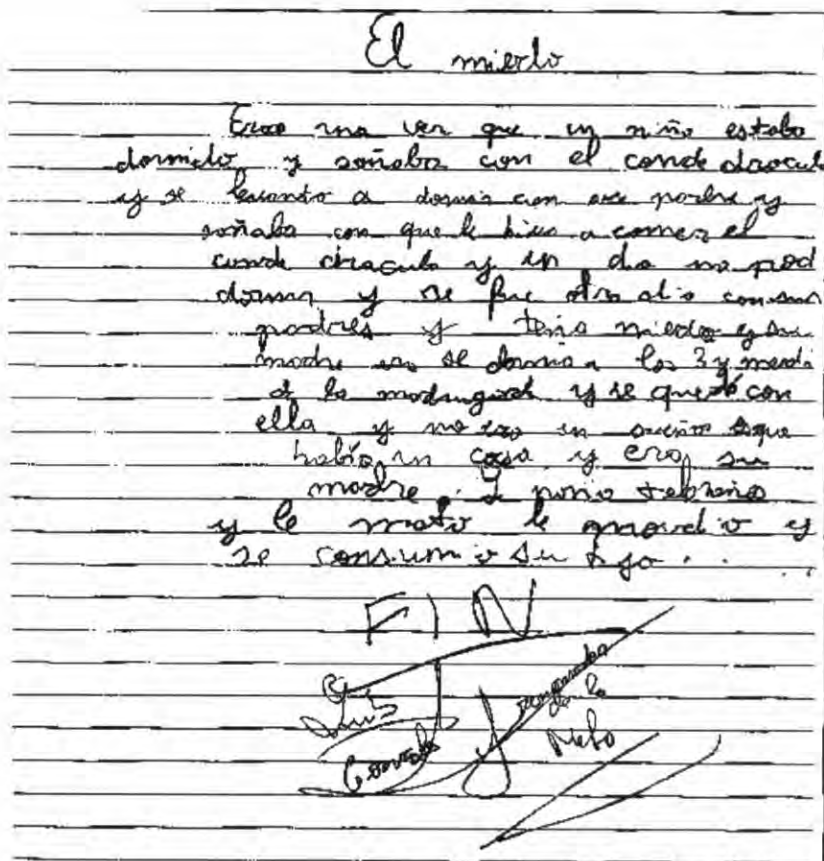 El mierlo
Erase una vez que un niño estaba
dormido y soñaba con el conde dracula
y se levanto a dormir con su padre y
soñaba con que le a comer el
conde dracula y un dia no pod
dormir y se fue otro dia con sus
padres y tenia miedo y su
madre no se dormia a las 3 y media
de la madrugada y se quedó con
ella y no era un sueño es que
había un cosa y era su
madre. Y
y le mato le mordio y
se consumio su hijo...
FIN
Luis
Gonzalo